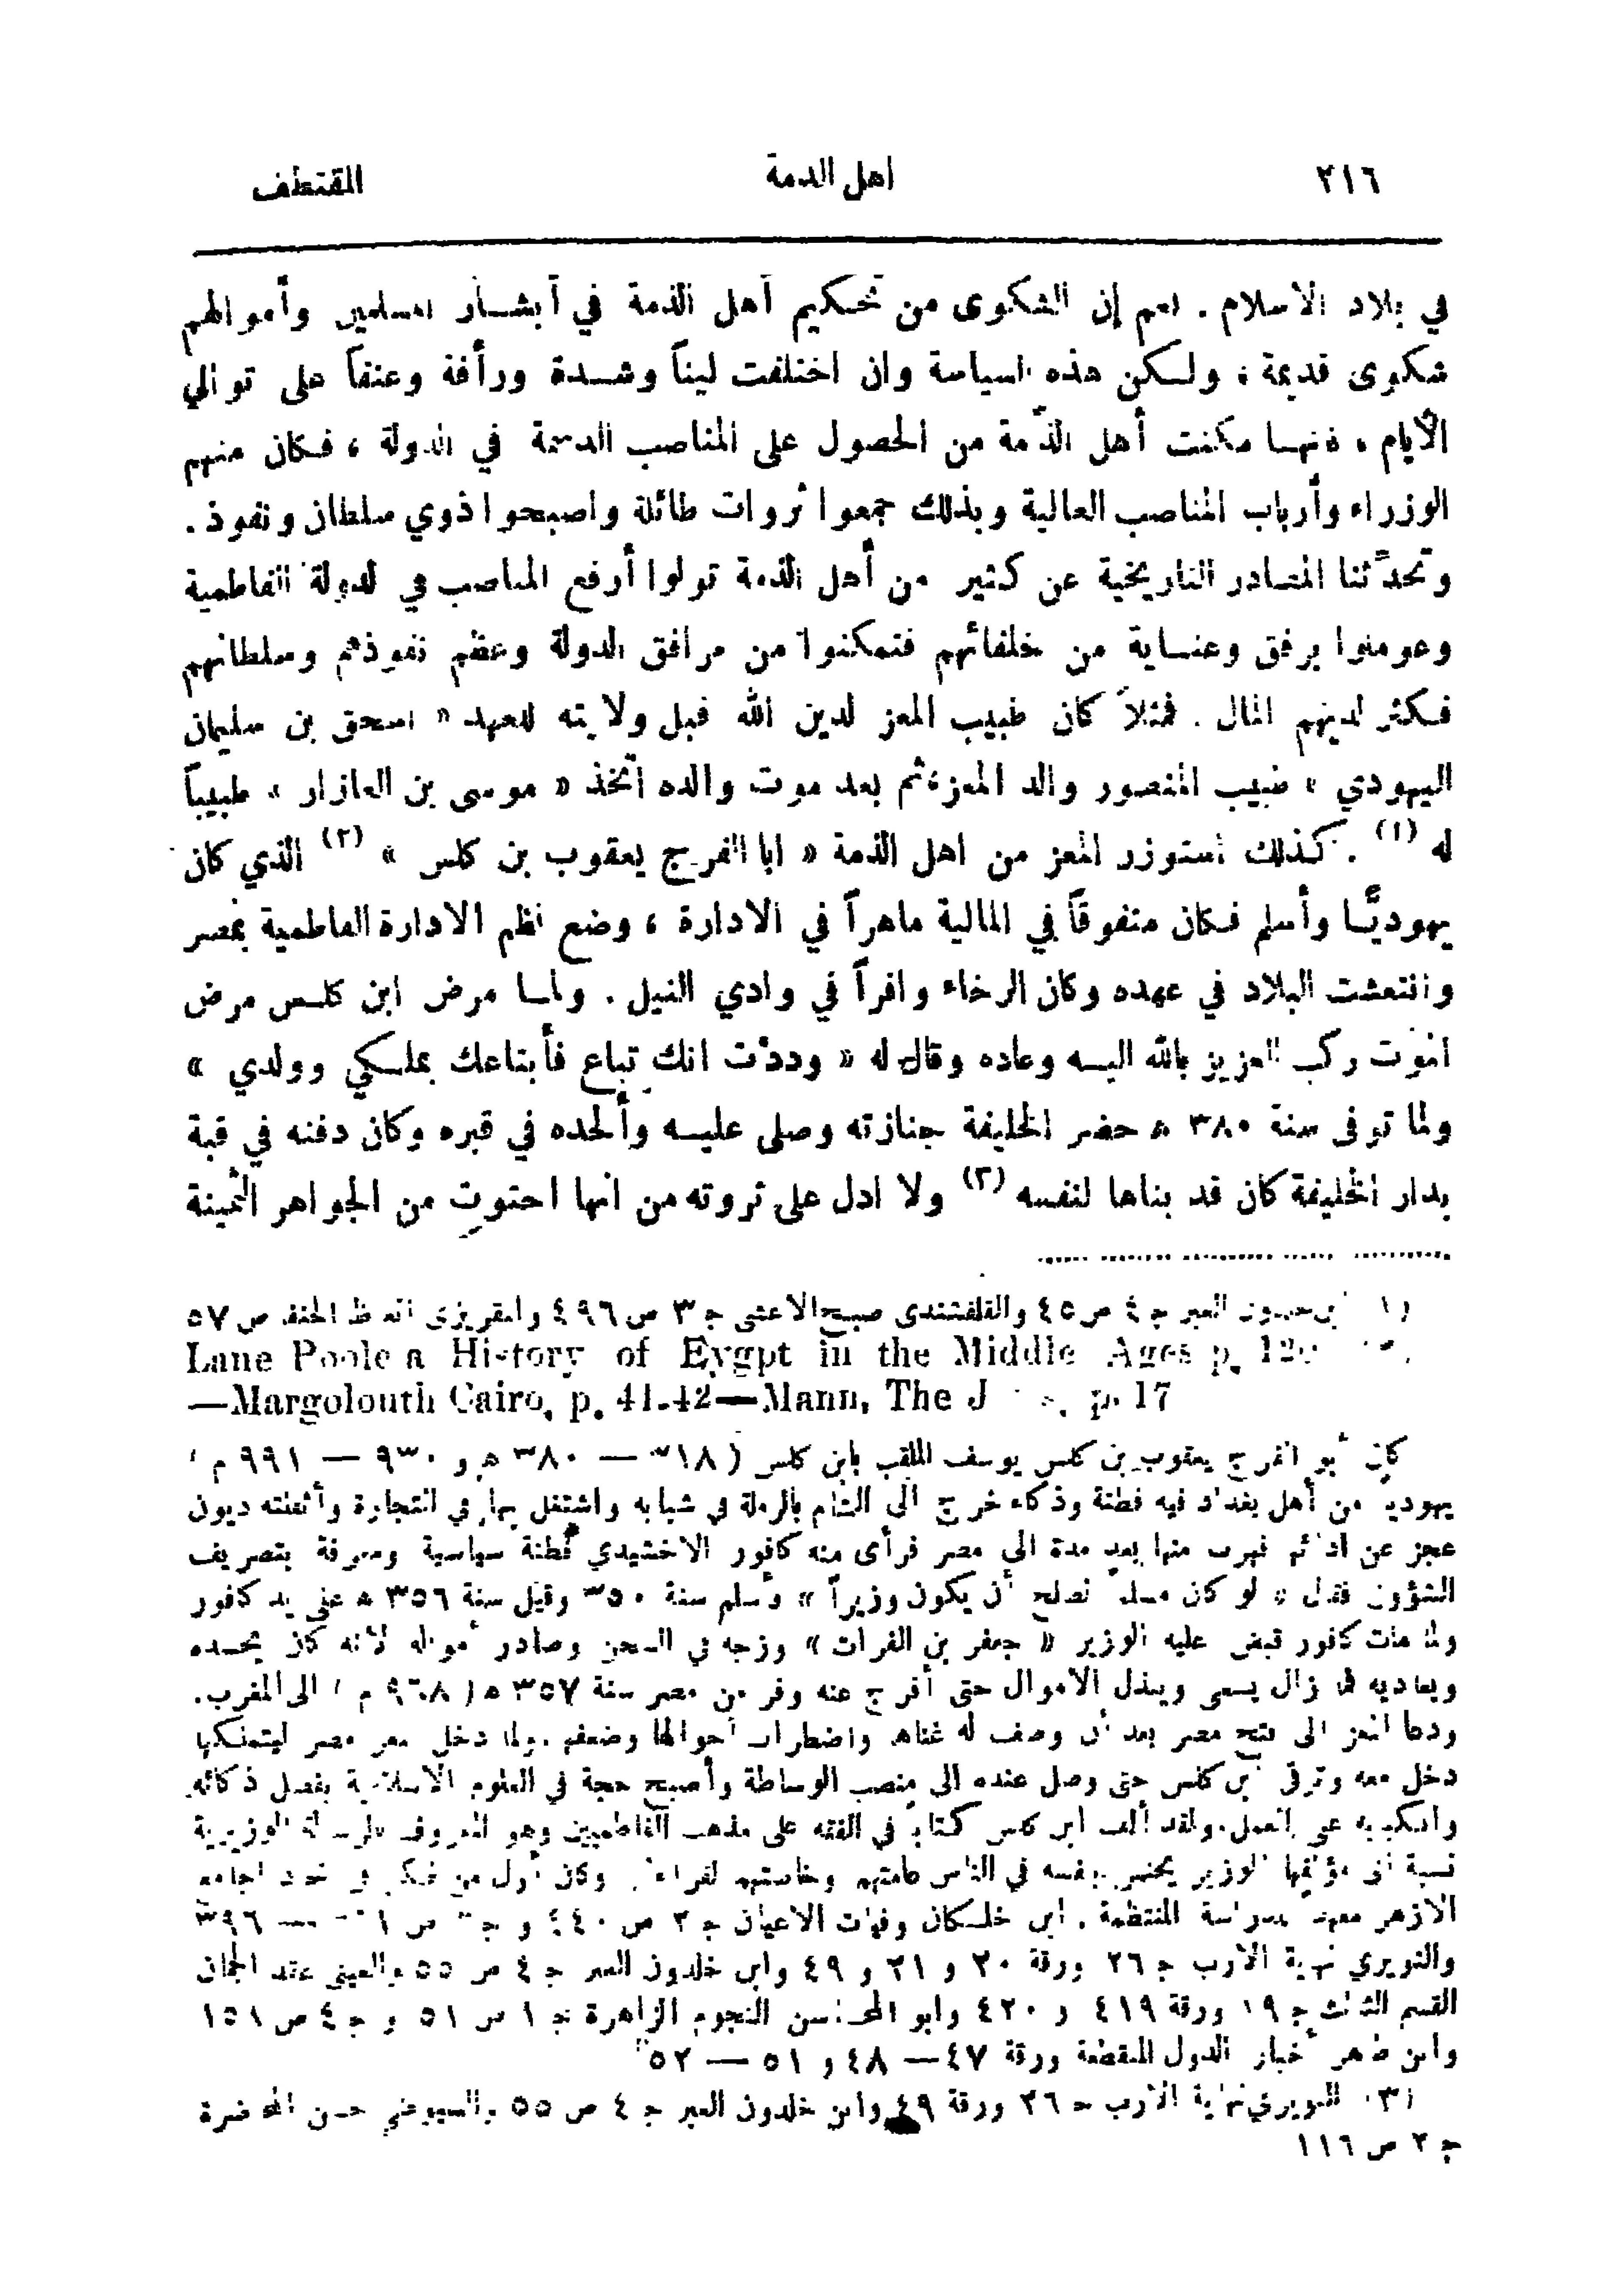 ٢١٦ اهل الذمة المقتطف
في بلاد الاسلام . نعم إن الشكوى من تحكيم أهل الذمة في أبشار المسلمين وأموالهم
شكوى قديمة ، ولكن هذه السياسة وان اختلفت ليناً وشدة ورأفة وعنفاً على توالي
الأيام ، فانها مكنت أهل الذمة من الحصول على المناصب الدسمة في الدولة ، فكان منهم
الوزراء وأرباب المناصب العالية وبذلك جمعوا ثروات طائلة واصبحوا ذوي سلطان ونفوذ .
وتحدثنا المصادر التاريخية عن كثير من أهل الذمة تولوا أرفع المناصب في الدولة الفاطمية
وعوملوا برفق وعناية من خلفائهم فتمكنوا من مرافق الدولة وعظم نفوذهم وسلطانهم
فكثر لديهم المال . فمثلاً كان طبيب المعز لدين الله قبل ولايته للعهد « اسحق بن سليمان
اليهودي » طبيب المنصور والد المعز ، ثم بعد موت والده اتخذ « موسى بن العازار » طبيباً
له (١) . كذلك استوزر المعز من اهل الذمة « ابا الفرج يعقوب بن كلس » (٢) الذي كان
يهوديًّا وأسلم فكان متفوقاً في المالية ماهراً في الادارة ، وضع نظم الادارة الفاطمية بمصر
وانتعشت البلاد في عهده وكان الرخاء وافراً في وادي النيل . ولما مرض ابن كلس مرض
الموت ركب العزيز بالله اليه وعاده وقال له « وددت انك تباع فأبتاعك بملكي وولدي »
ولما توفى سنة ٣٨٠ ه حضر الخليفة جنازته وصلى عليه وألحده في قبره وكان دفنه في قبة
بدار الخليفة كان قد بناها لنفسه (٣) ولا ادل على ثروته من انها احتوت من الجواهر الثمينة
(١ العبر ج ٤ ص ٤٥ والقلقشندى صبح الاعشى ج ٣ ص ٤٩٦ والمقريزى اتعاظ الحنفا ص ٥٧
Lane Poole a History of Eygpt in the Middle Ages p.
—Margolouth Cairo, p. 41-42—Mann, The p. 17
كان أبو الفرج يعقوب بن كلس يوسف الملقب بابن كلس ( ٣١٨ — ٣٨٠ ه و ٩٣٠ — ٩٩١ م )
يهودياً من أهل بغداد فيه فطنة وذكاء خرج الى الشام بالرملة في شبابه واشتغل بها في التجارة وأثقلته ديون
عجز عن ادائها فهرب منها بعد مدة الى مصر فرأى منه كافور الاخشيدي فطنة سياسية ومعرفة بتصريف
الشؤون فقال « لو كان مسلماً لصلح أن يكون وزيراً » وأسلم سنة ٣٥٠ وقيل سنة ٣٥٦ ه على يد كافور
ولما مات كافور قبض عليه الوزير « جعفر بن الفرات » وزجه في السجن وصادر أمواله لانه كان يحسده
ويعاديه فما زال يسعى ويبذل الاموال حتى أفرج عنه وفر من مصر سنة ٣٥٧ ه ( ٩٦٨ م ) الى المغرب .
ودعا المعز الى فتح مصر بعد أن وصف له غناها واضطراب أحوالها وضعفها . ولما دخل معز مصر ليتملكها
دخل معه وترقى ابن كلس حتى وصل عنده الى منصب الوساطة وأصبح حجة في العلوم الاسلامية بفضل ذكائه
وانكبابه على العمل . ولقد ألف ابن كلس كتاباً في الفقه على مذهب الفاطميين وهو المعروف بالرسالة الوزيرية
نسبة الى مؤلفها الوزير يحضر بنفسه في الناس عامتهم وخاصتهم وكان أول من فكر في الجامع
الازهر معهداً للدراسة المنتظمة . ابن خلكان وفيات الاعيان ج ٢ ص ٤٤٠ و ٣٩٦
والنويري نهاية الارب ج ٢٦ ورقة ٣٠ و ٣١ و ٤٩ وابن خلدون العبر ج ٤ ص ٥٥ والعينى عقد الجمان
القسم الثالث ج ١٩ ورقة ٤١٩ و ٤٢٠ وابو المحاسن النجوم الزاهرة ج ١ ص ٥١ و ج ٤ ص ١٥١
وابن ظاهر أخبار الدول المنقطعة ورقة ٤٧ — ٤٨ و ٥١ — ٥٢
(٣) النويري نهاية الارب ج ٢٦ ورقة ٤٩ وابن خلدون العبر ج ٤ ص ٥٥ والسيوطي حسن المحاضرة
ج ٢ ص ١١٦